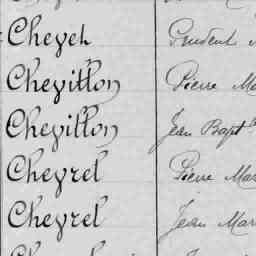 Cheyeh Prudent
Cheyillon Pierre Ma
Cheyillon Jean Bapt
Cheyrel Pierre Mar
Cheyrel Jean Mar